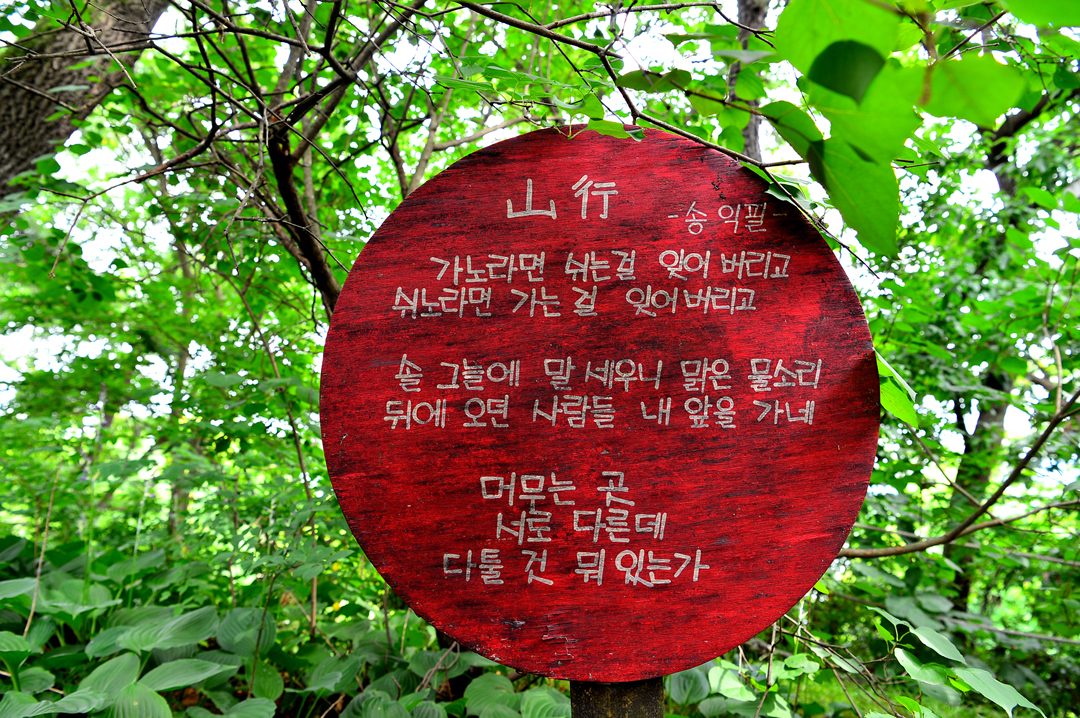 山行
-송익필-
가노라면 쉬는걸 잊어버리고
쉬노라면 가는걸 잊어버리고
솔 그늘에 말 세우니 맑은 물소리
뒤에 오던 사람들 내 앞을 가네
머무는 곳
서로 다른데
다툴 것 뭐있는가